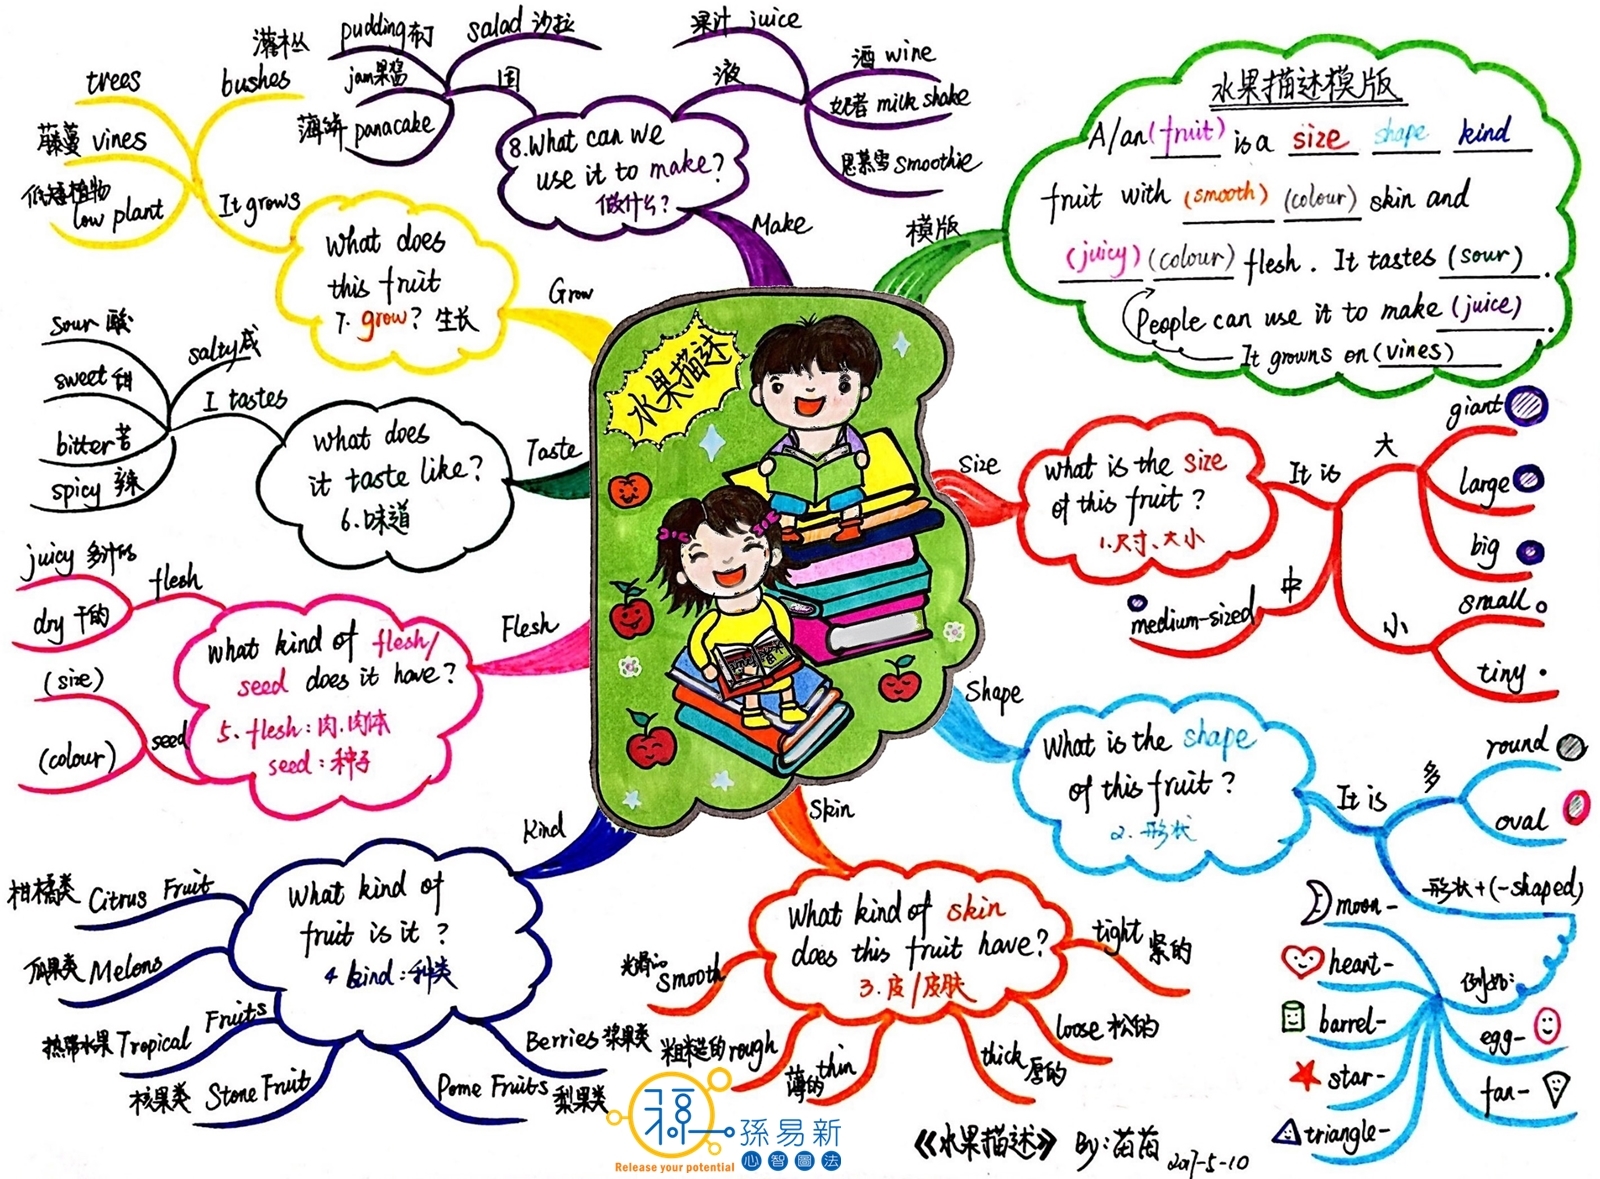 水果描述
模版
水果描述模版
A/an (fruit) is a size shape kind
fruit with (smooth) (colour) skin and
(juicy) (colour) flesh. It tastes (sour).
People can use it to make (juice).
It growns on (vines)
Size
What is the size
of this fruit?
1.尺寸、大小
It is
大
giant
large
big
中
medium-sized
小
small
tiny
Shape
What is the shape
of this fruit?
2.形状
It is
多
round
oval
形状+(-shaped)
例如:
moon-
heart-
barrel-
star-
triangle-
egg-
fan-
Skin
What kind of skin
does this fruit have?
3.皮/皮肤
smooth
粗糙的 rough
薄的 thin
thick 厚的
loose 松的
tight 紧的
Kind
What kind of
fruit is it?
4 kind:种类
柑橘类 Citrus Fruit
瓜果类 Melons
热带水果 Tropical Fruits
核果类 Stone Fruit
Pome Fruits 梨果类
Berries 浆果类
Flesh
What kind of flesh/
seed does it have?
5. flesh:肉.肉体
seed:种子
flesh
juicy 多汁的
dry 干的
seed
(size)
(colour)
Taste
What does
it taste like?
6.味道
I tastes
sour 酸
salty 咸
sweet 甜
bitter 苦
spicy 辣
Grow
What does
this fruit
7. grow? 生长
It grows
trees
灌木丛 bushes
藤蔓 vines
低矮植物
low plant
Make
8.What can we
use it to make?
做什么?
固
pudding 布丁
salad 沙拉
jam 果酱
薄饼 panacake
液
果汁 juice
酒 wine
奶昔 milk shake
思慕雪 smoothie
《水果描述》 By:苗苗 2017-5-10
孫易新
心智圖法
Release your potential